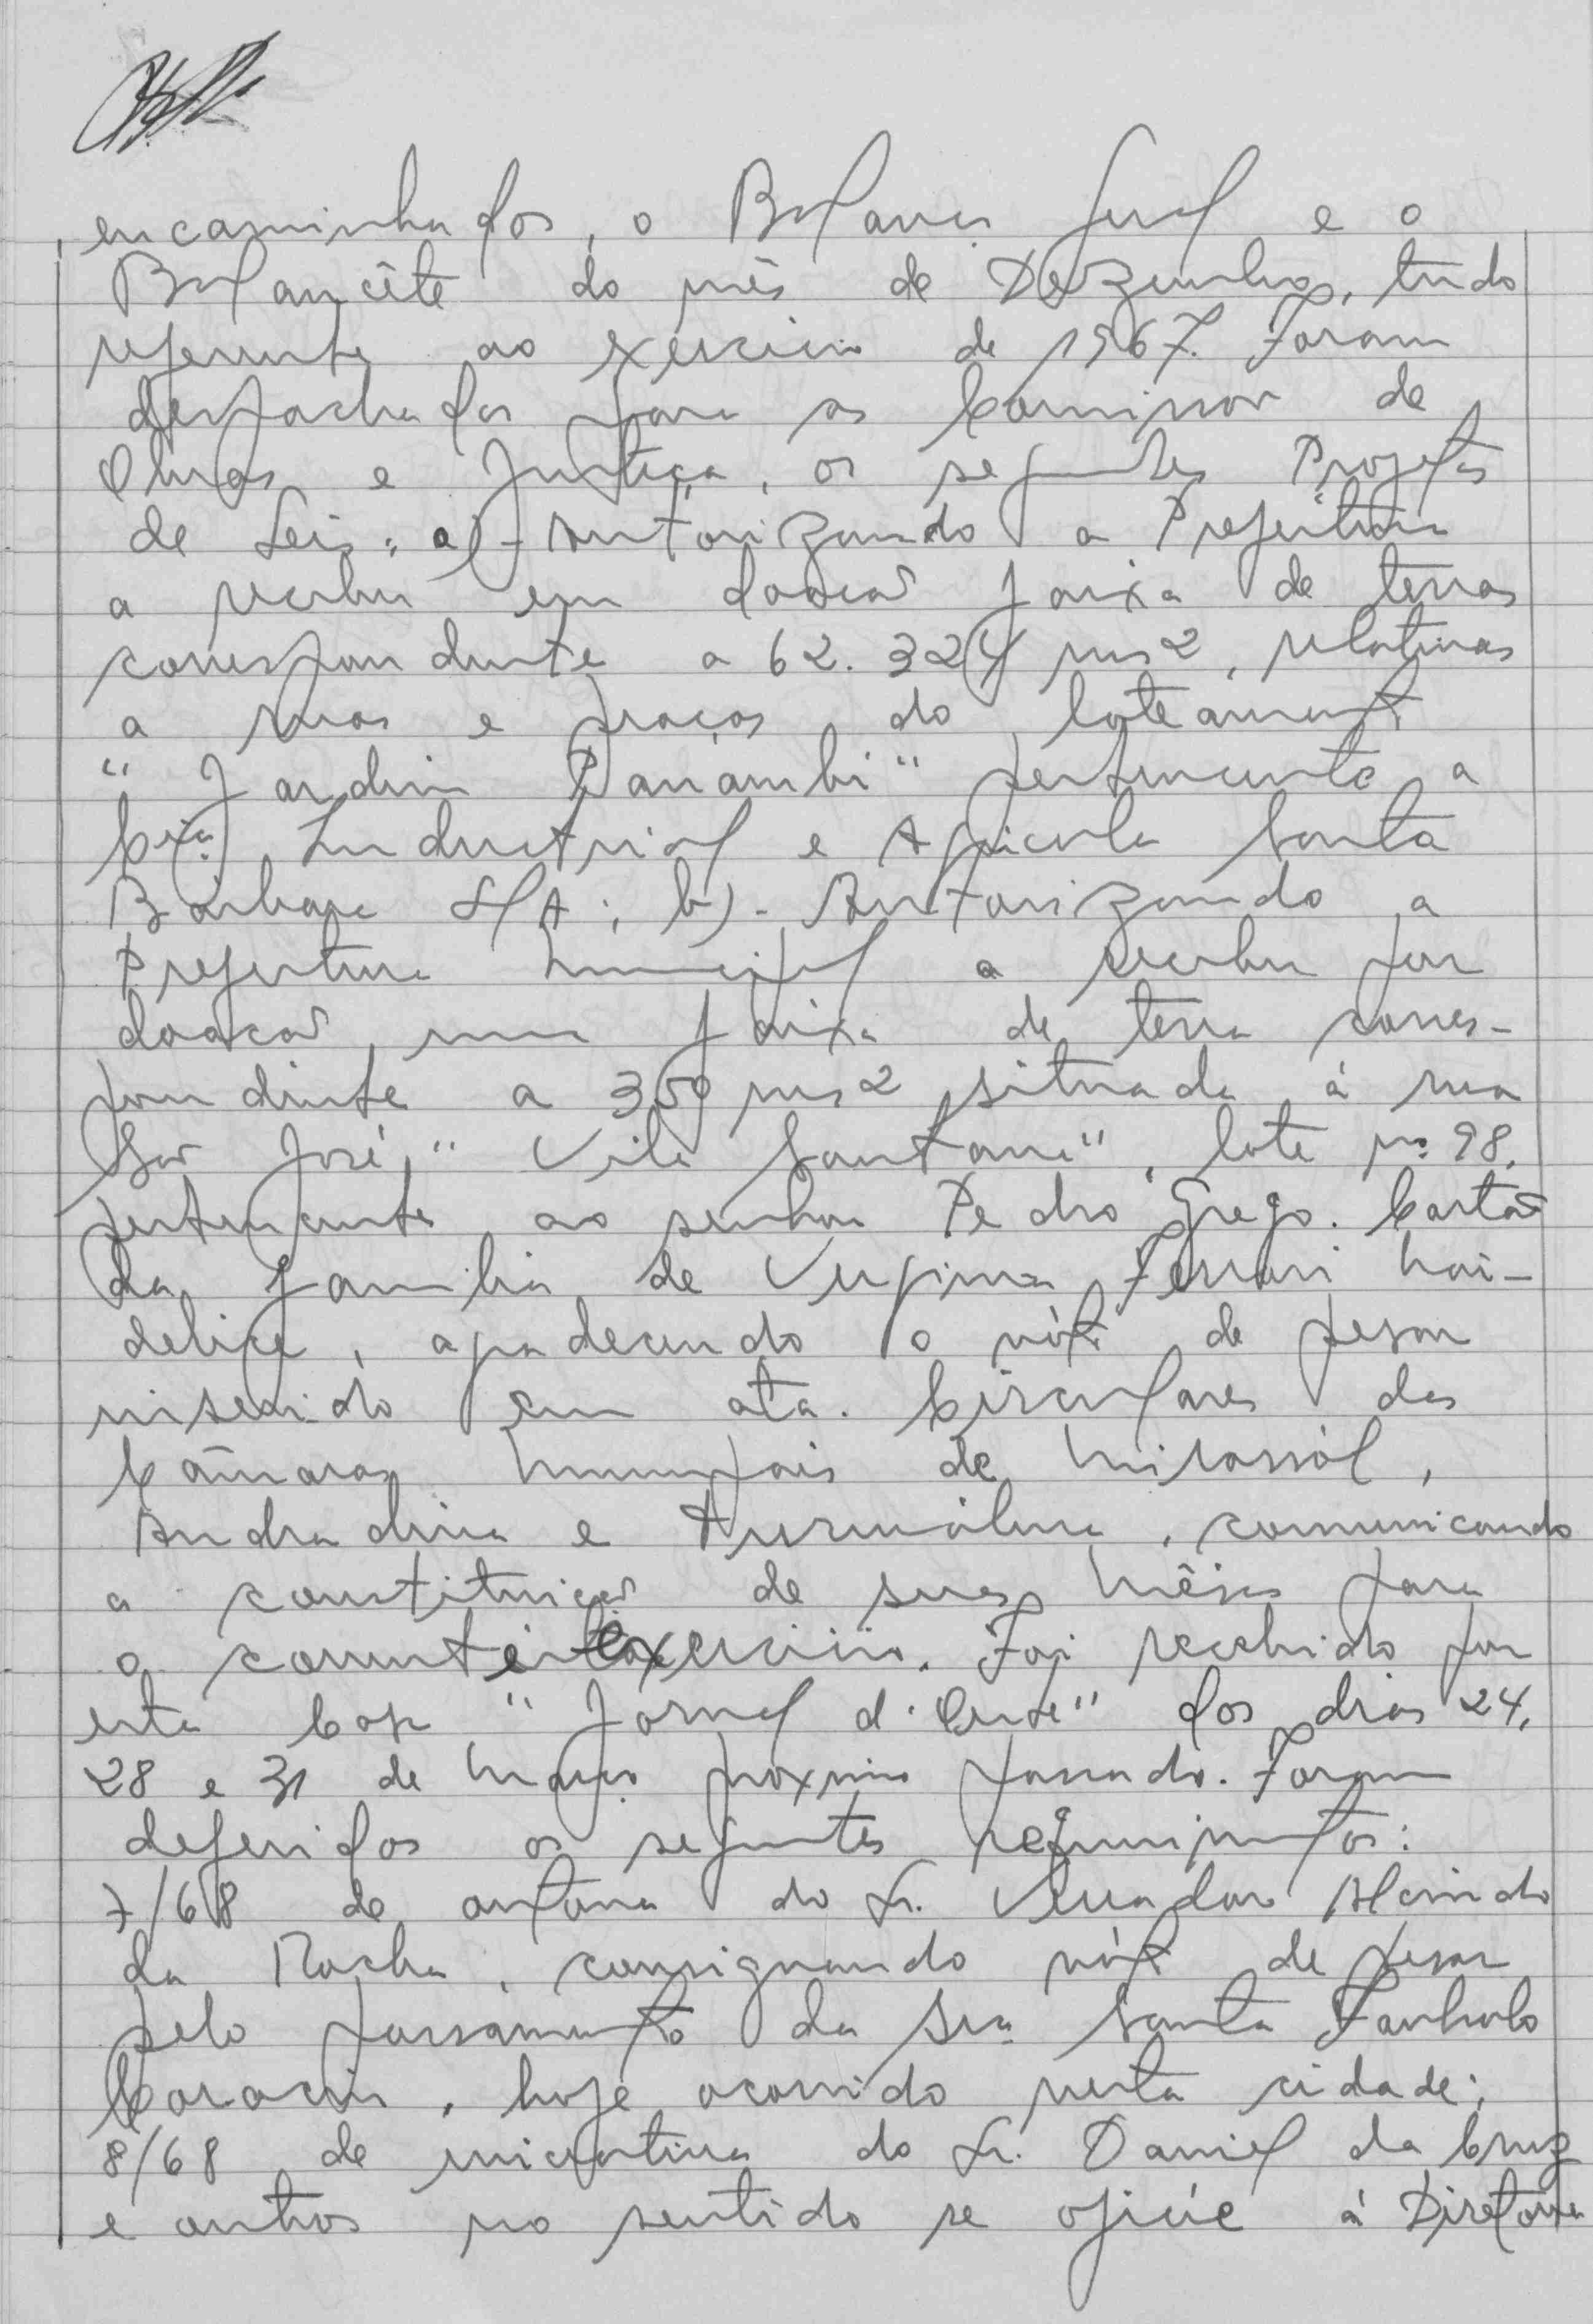 encaminhados, o Balanço Geral e o
Balancête do mês de Dezembro, tudo
referente ao exercicio de 1967. Foram
despachados para as Comissões de
Obras e Justiça, os seguintes Projetos
de Leis: a)- Autorizando a Prefeitura
a receber em doação faixa de terras
correspondente a 62.324 ms2, relativas
a ruas e praças do loteamento
"Jardim Panambi" pertencente a
Cia. Industrial e Agricola Santa
Bárbara S/A; b)- Autorizando a
Prefeitura Municipal a receber por
doação, uma faixa de terra corres-
pondente a 350 ms2 situada á rua
São José, "Vila Santana", lote nº 98,
pertencente ao senhor Pedro Grego. Cartão
da familia de Virginia Ferrari
agradecendo o vóto de pesar
inserido em ata. Circulares das
Câmaras Municipais de Mirassól,
Andradina e comunicando
a constituição de suas Mêsas para
o corrente exercicio. Foi recebido por
esta Casa "Jornal d'Oeste" dos dias 24,
28 e 31 de Março próximo passado. Foram
deferidos os seguintes requerimentos:
7/68 de autoria do Sr. Vereador Alcindo
da Rocha, consignando vóto de pesar
pelo passamento da Sra Santa
hoje ocorrido nesta cidade;
8/68 de iniciativa do Sr. Daniel da Cruz
e outros no sentido se oficie á Diretoria